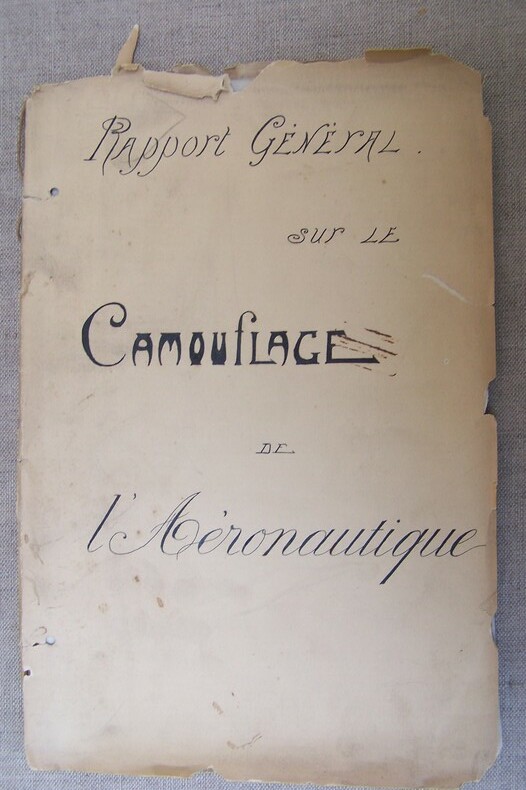 Rapport Général.
sur le
Camouflage
de
l'Aéronautique